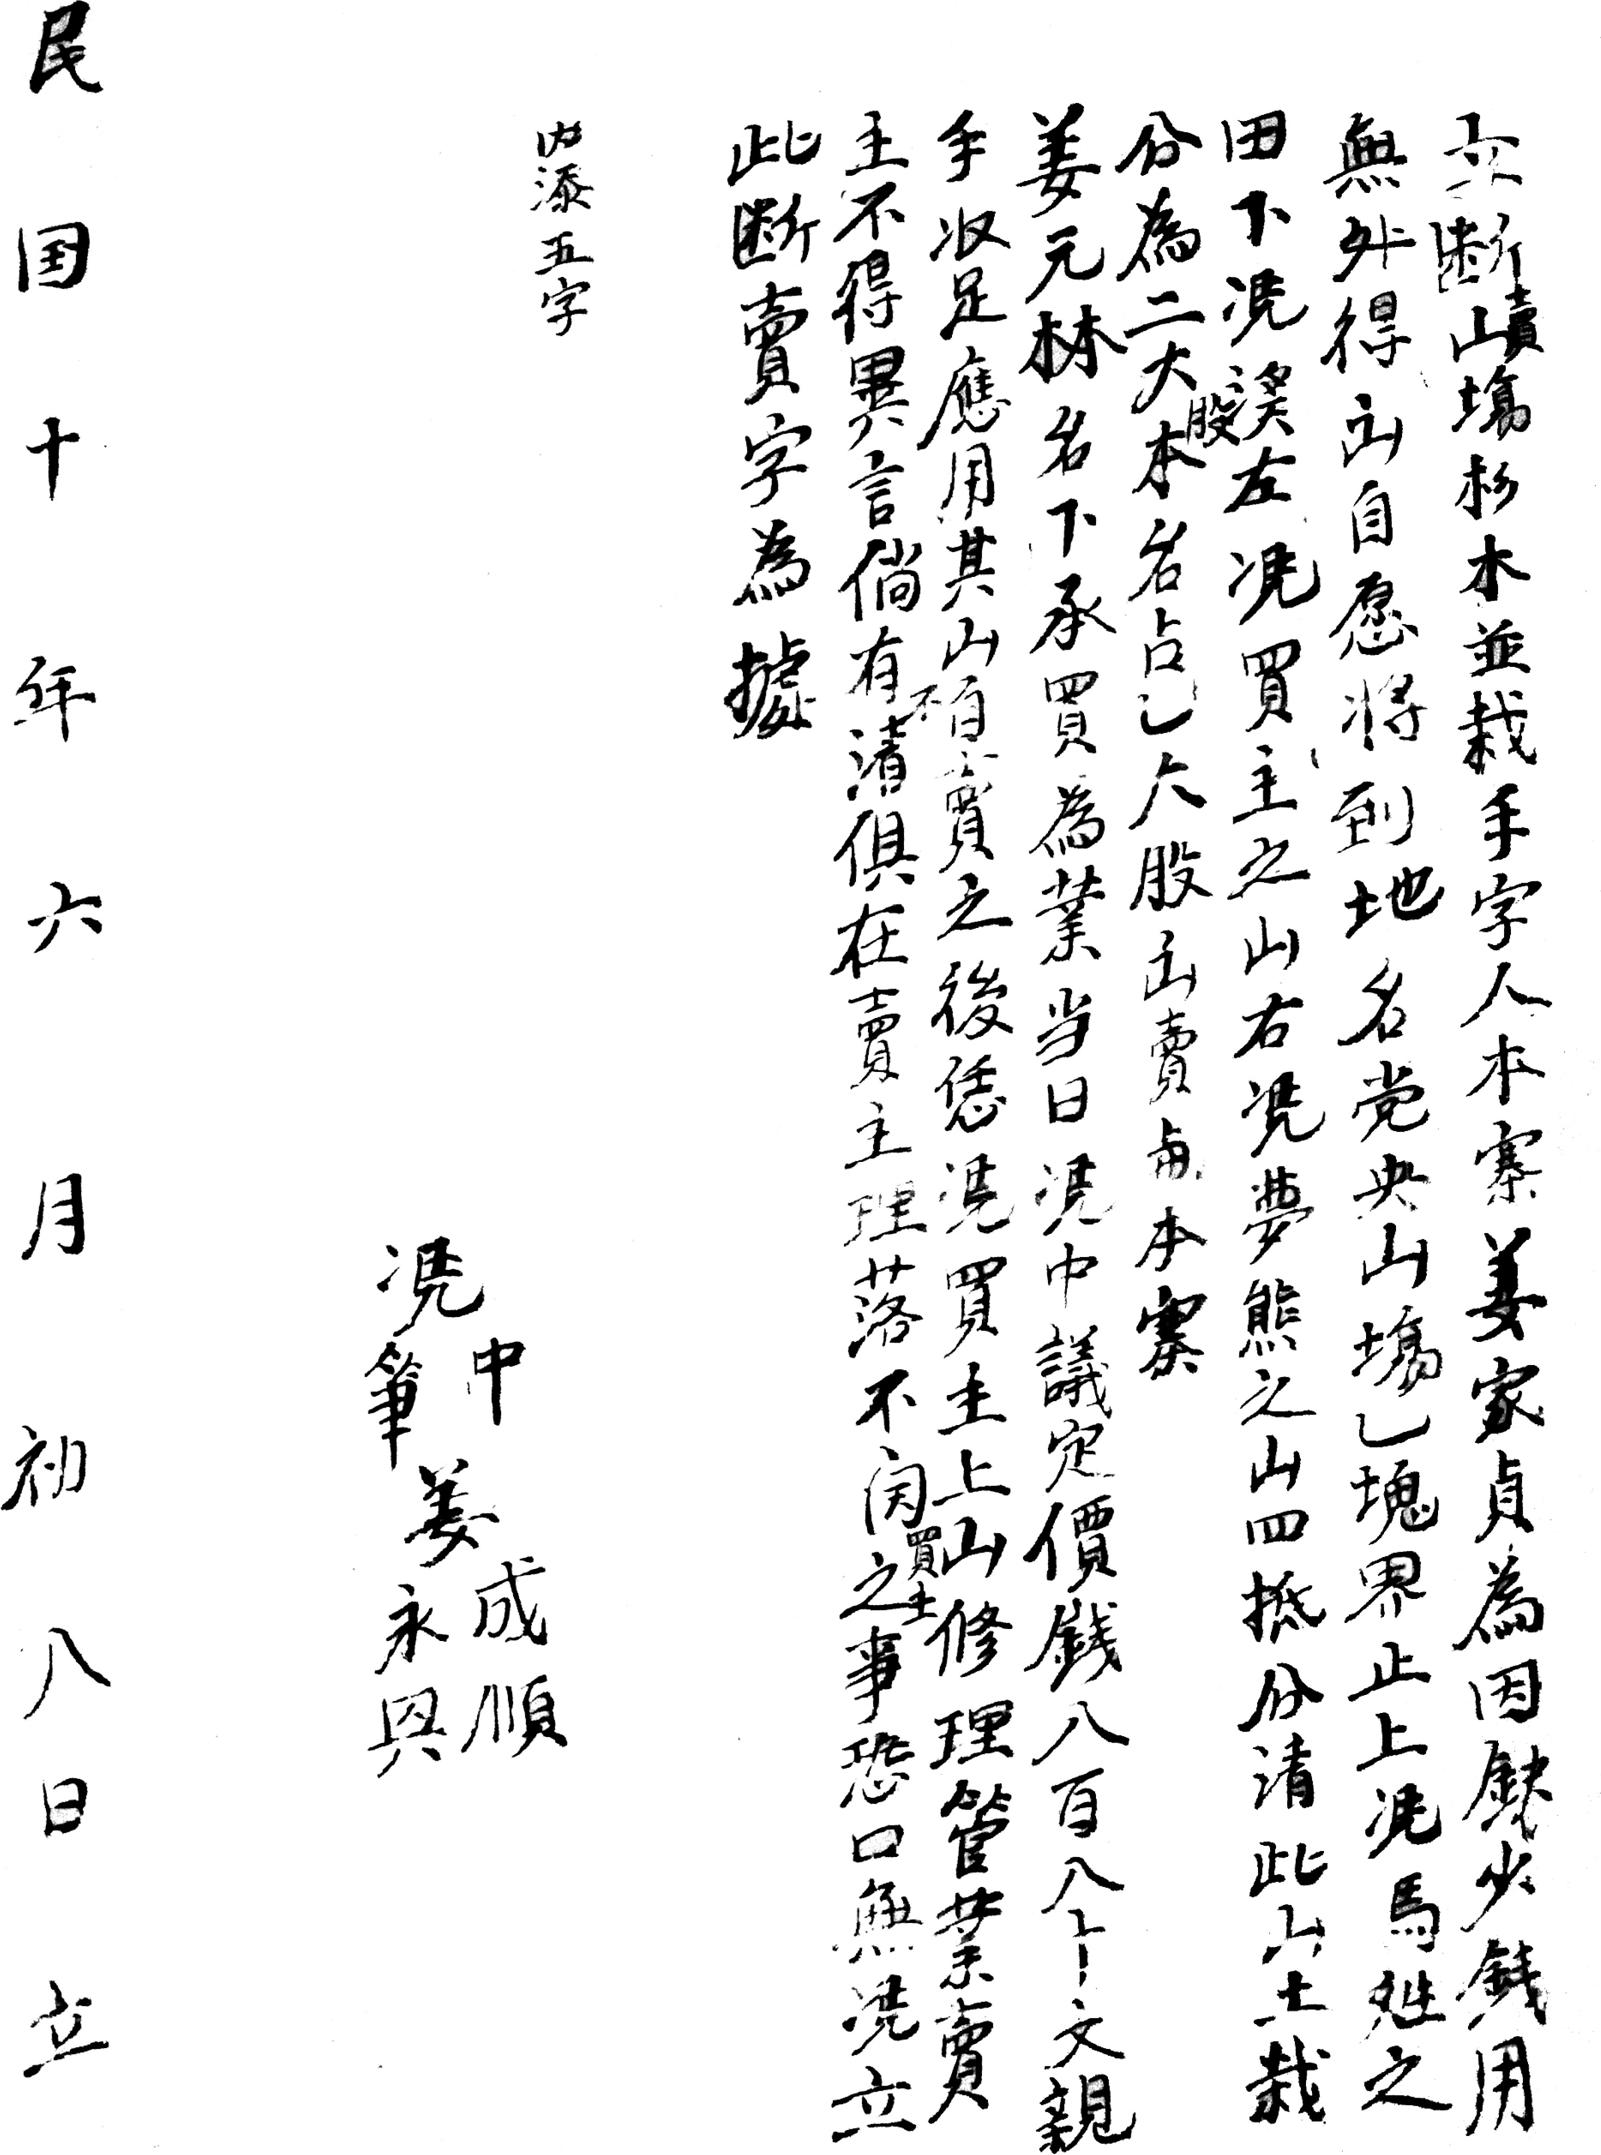 立断賣山塲杉木並栽手字人本寨姜家貞為因缺少錢用
無外得出自愿將到地名党央山塲乚塊界止上凴馬姓之
田下凴溪左凴買主之山右凴夢熊之山四抵分清此山土栽
分為二大股本名占乚大股出賣與本寨
姜元林名下承買為業当日凴中議定價錢八百八十文親
手收足應用其山不自賣之後恁凴買主上山修理管業賣
主不得異言倘有不清俱在賣主理落不関買主之事恐口無凴立
此断賣字為據
内添五字
凴中 姜成順
筆 姜永興
民国十年六月初八日立